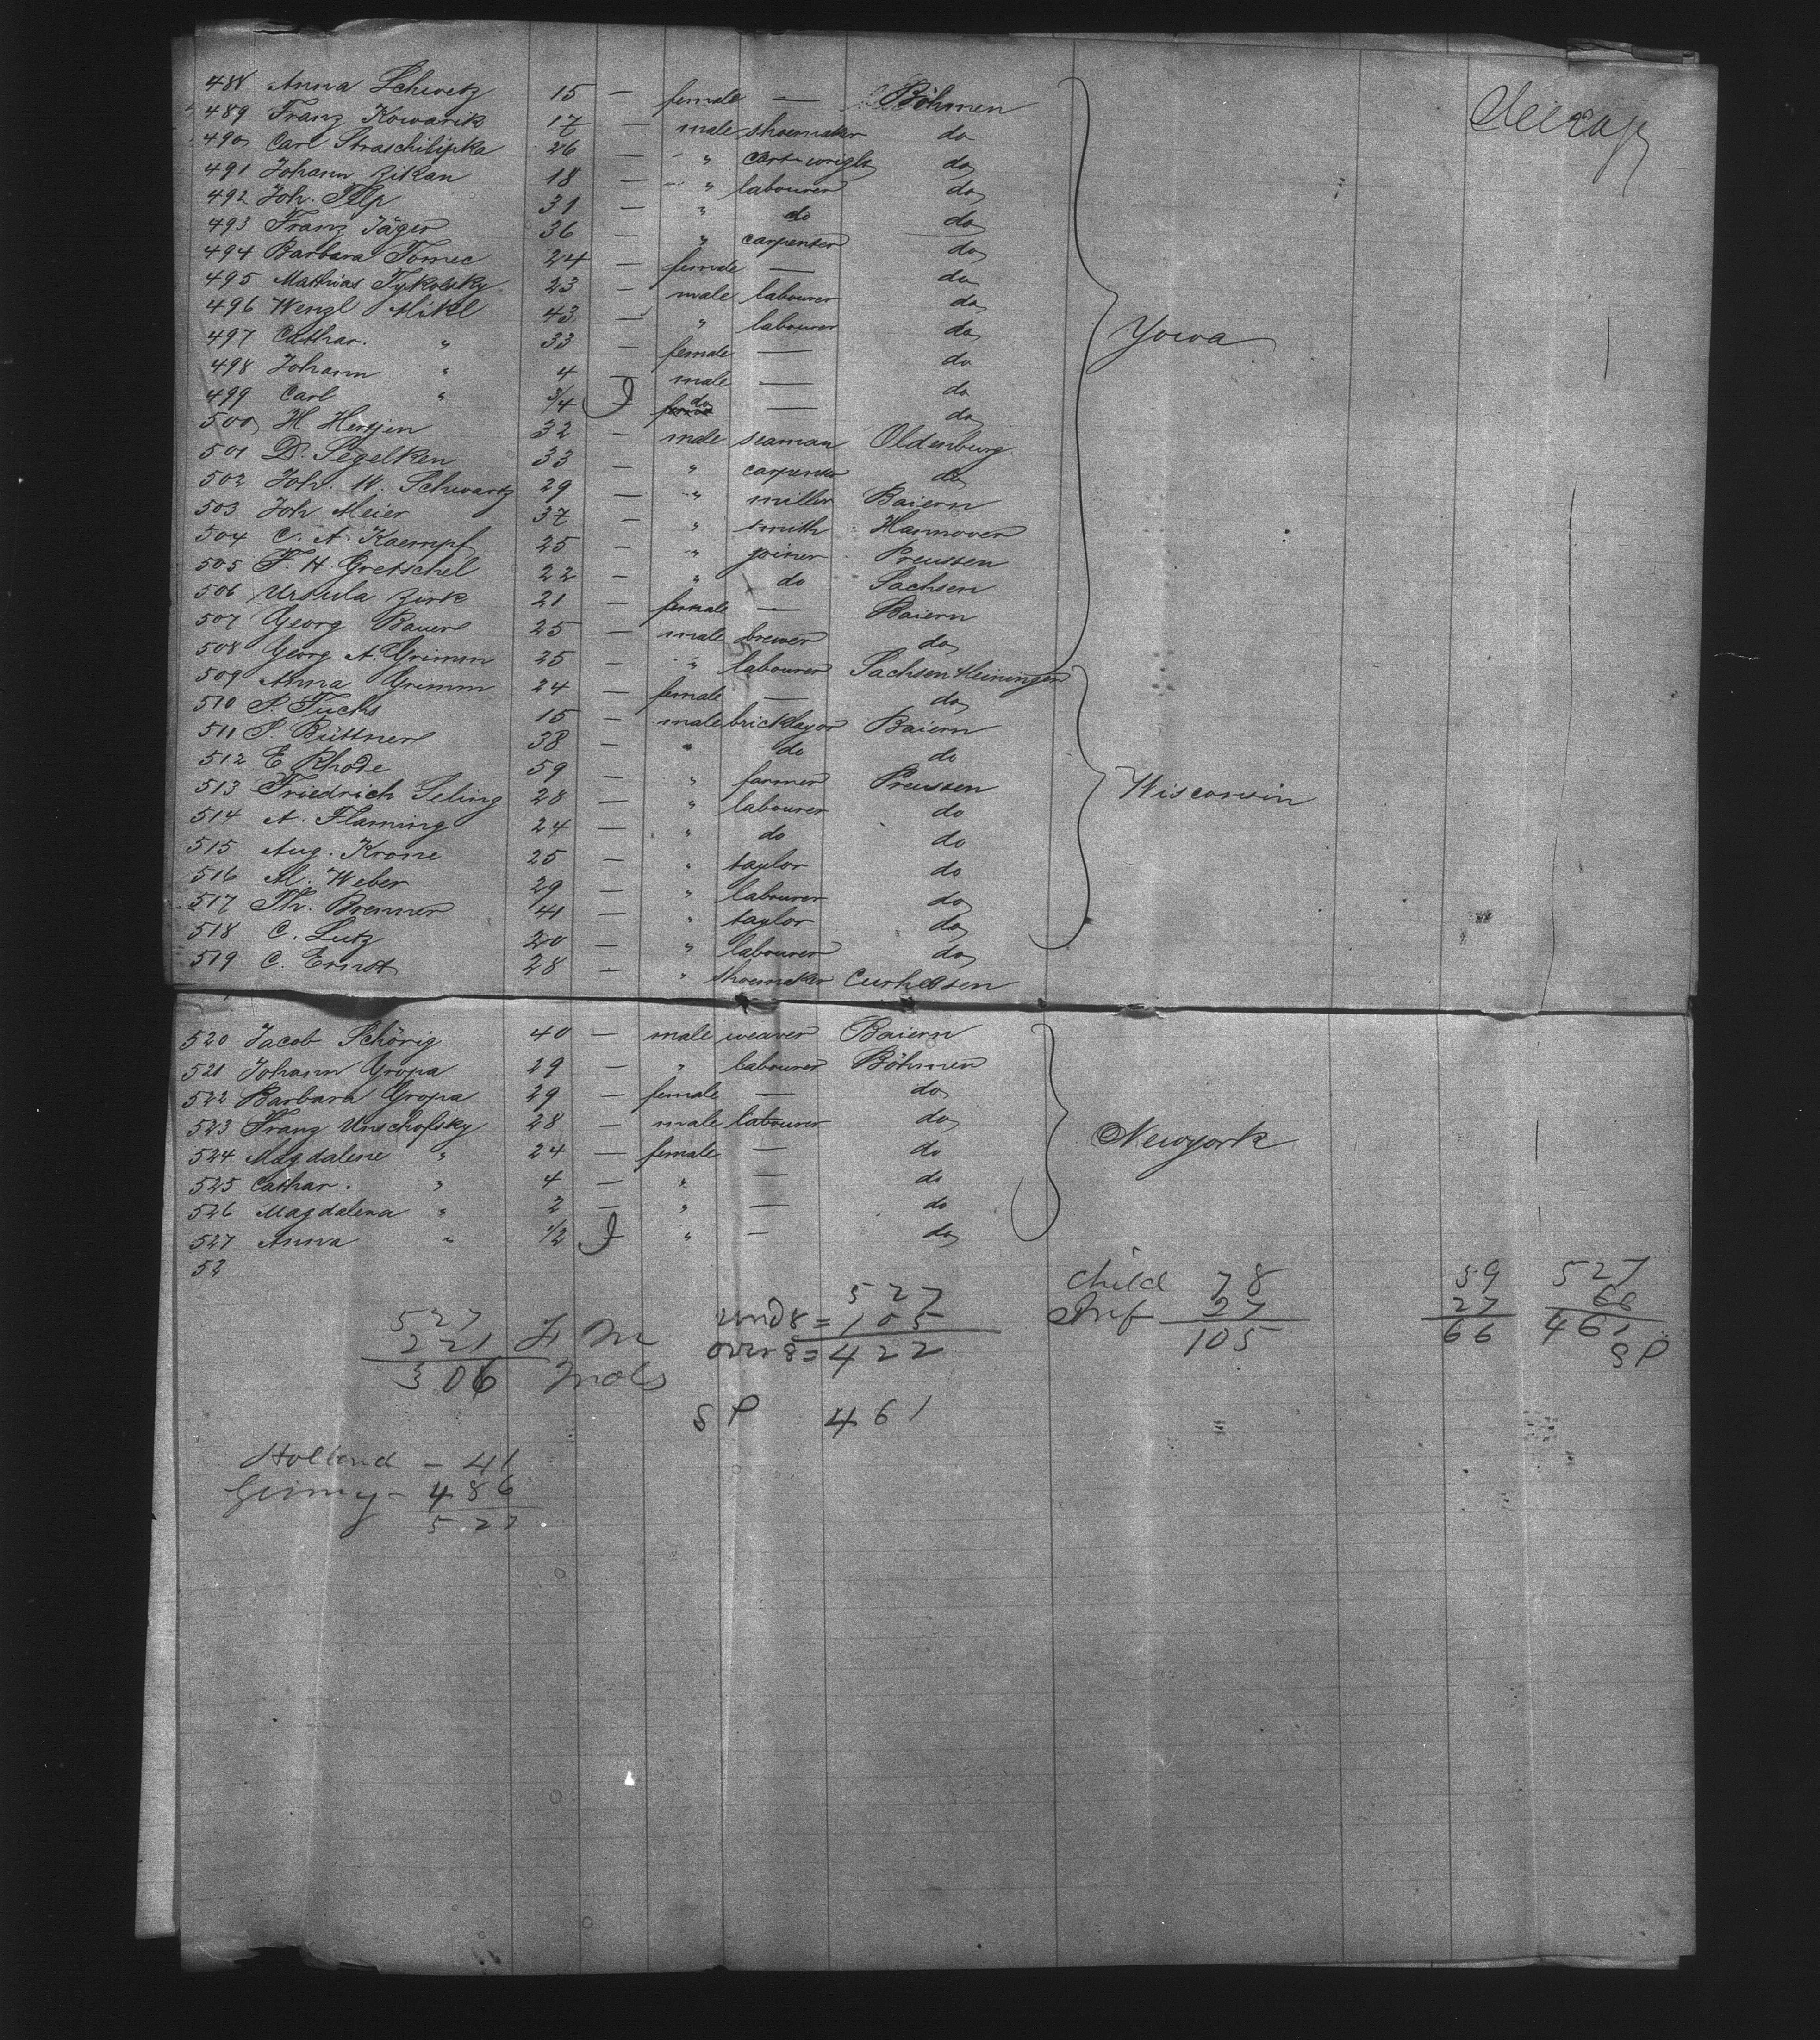 488 Anna Schwetz 15 — female — Böhmen
489 Franz Kowarik 17 — male shoemaker do
490 Carl Straschilipka 26 — " cart-wright do
491 Johann Zikan 18 — " labourer do
492 Joh. Tilp 31 — " do do
493 Franz Jäger 36 — " carpenter do
494 Barbara Tomec 24 — female — do
495 Mathias Tykolsky 23 — male labourer do
496 Wenzl Mikl 43 — " labourer do
Yowa
497 Cathar. " 33 — female — do
498 Johann " 4 — male — do
499 Carl " 3/4 do — do
500 H Herjen 32 — male seaman Oldenburg
501 D. Segelken 33 — " carpenter do
502 Joh. W. Schwartz 29 — " miller Baiern
503 Joh Meier 37 — " smith Hannover
504 C. A. Kaempf 25 — " joiner Preussen
505 F. H. Gretschel 22 — " do Sachsen
506 Ursula Zirk 21 — female — Baiern
507 Georg Bauer 25 — male brewer do
508 Georg A. Grimm 25 — " labourer Sachsen Meiningen
509 Anna Grimm 24 — female — do
510 P. Fuchs 15 — male bricklayor Baiern
511 P. Büttner 38 — " do do
512 E Rhode 59 — " farmer Preussen
Wisconsin
513 Friedrich Seling 28 — " labourer do
514 A. Flaming 24 — " do do
515 Aug. Krone 25 — " taylor do
516 M. Weber 29 — " labourer do
517 Th. Brenner 41 — " taylor do
518 C. Lutz 20 — " labourer do
519 C. Ernst 28 — " shoemaker Curhessen
520 Jacob Schörig 40 — male weaver Baiern
521 Johann Gropa 29 — " labourer Böhmen
522 Barbara Gropa 29 — female — do
523 Franz Unschofsky 28 — male labourer do
Newyork
524 Magdalene " 24 — female — do
525 Cathar. " 4 — " — do
526 Magdalena " 2 — " — do
527 Anna " 1/2 — " — do
52
527
221 F M
306 Mols
527
und 8 = 105
over 8 = 422
S P 461
Child 78
Inf 27
105
39
27
66
527
66
461
S P
Holland - 41
Germy - 486
527